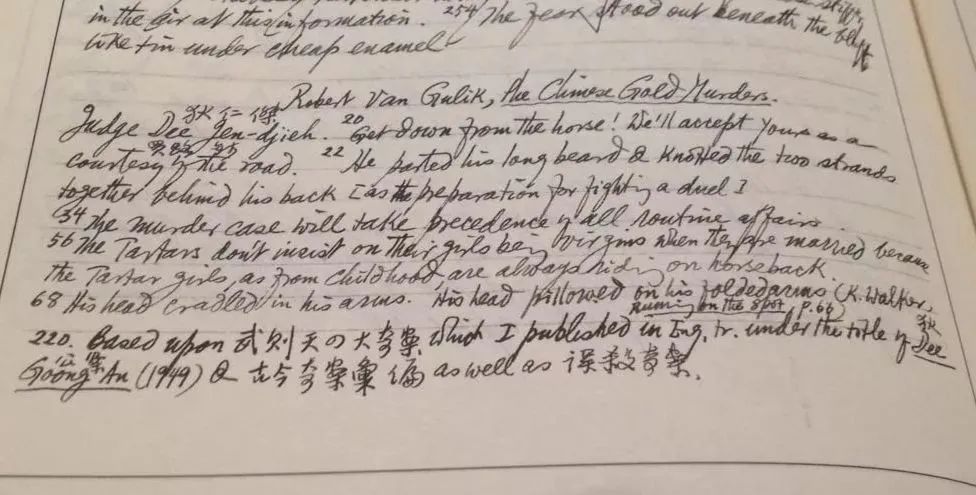 in the air at this information. 254 The fear stood out beneath the
like tin under cheap enamel
Robert Van Gulik, The Chinese Gold Murders.
狄仁傑
Judge Dee Jen-djieh. 20 Get down from the horse! We'll accept yours as a
courtesy of the road. 22 He parted his long beard & knotted the two strands
together behind his back [as the preparation for fighting a duel]
34 The murder case will take precedence of all routine affairs.
56 The Tartars don't insist on their girls being virgins when they are married because
the Tartar girls, as from childhood, are always riding on horseback.
68 His head cradled in his arms. His head pillowed on his folded arms (K. Walker,
Running on the Spot, p. 66)
220. Based upon 武則天四大奇案 which I published in Eng. tr. under the title of 狄 Dee
公案
Goong An (1949) & 古今奇案彙編 as well as 誤殺奇案.